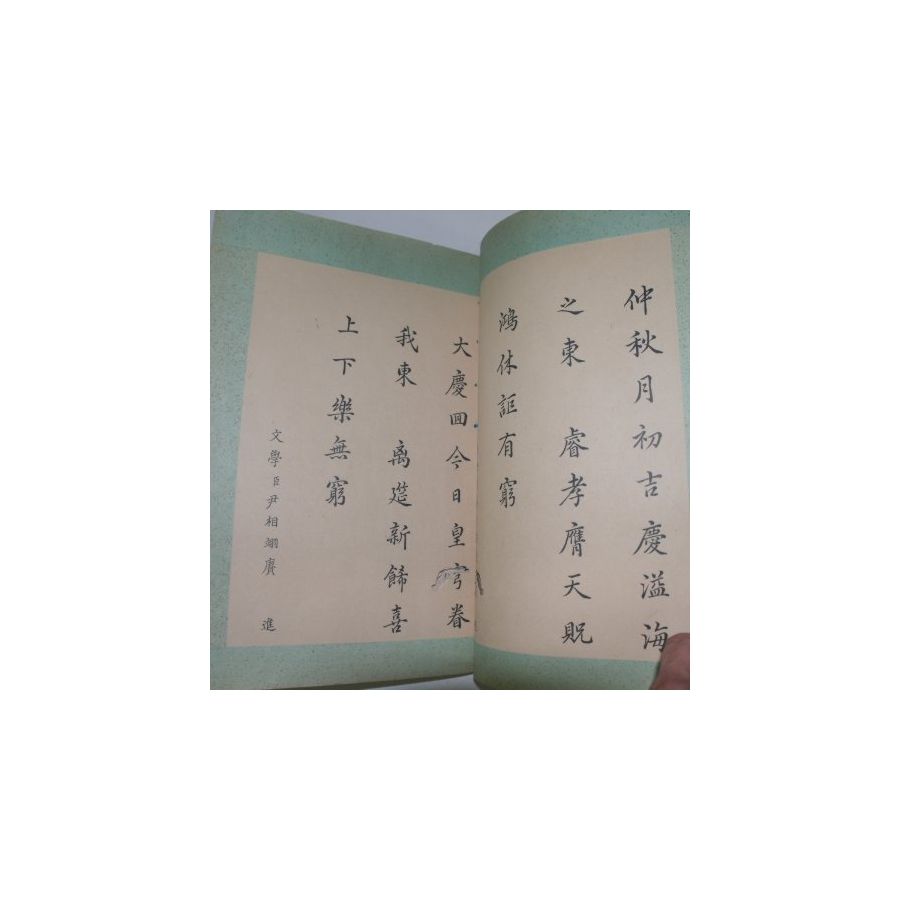 仲秋月初吉慶溢海
之東 睿孝膺天貺
鴻休詎有窮
大慶回今日皇穹眷
我東 离筵新餙喜
上下樂無窮
文學臣尹相翊賡 進